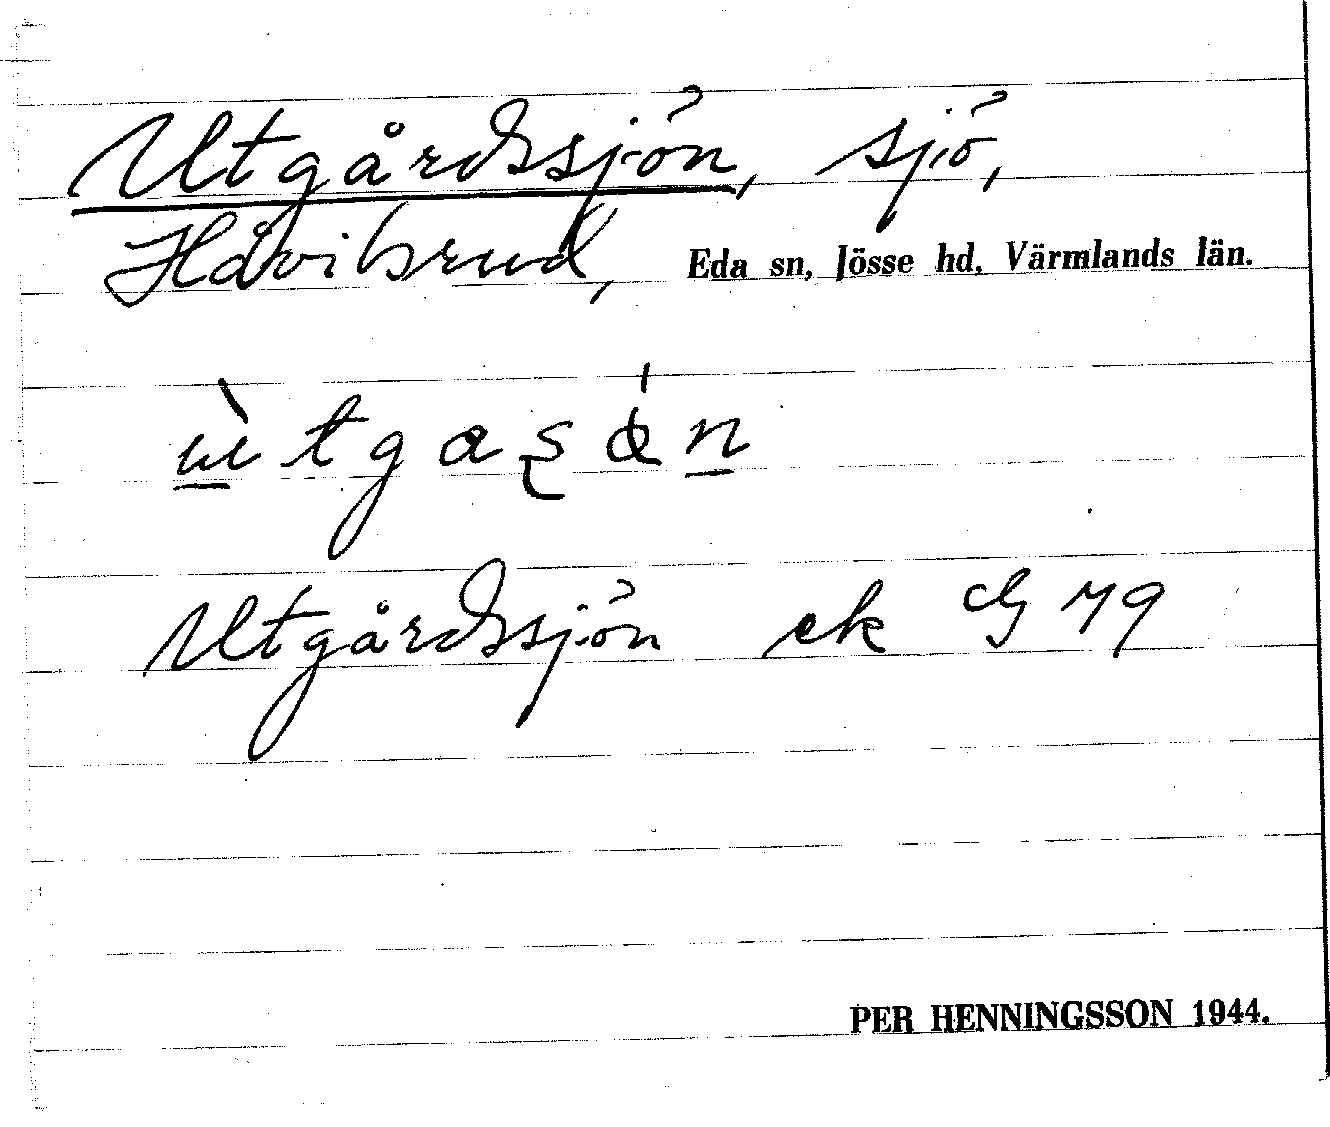 Utgårdssjön, sjö,
Håvilsrud, Eda sn, Jösse hd, Värmlands län.
Utgårdssjön ek G 79
PER HENNINGSSON 1944.